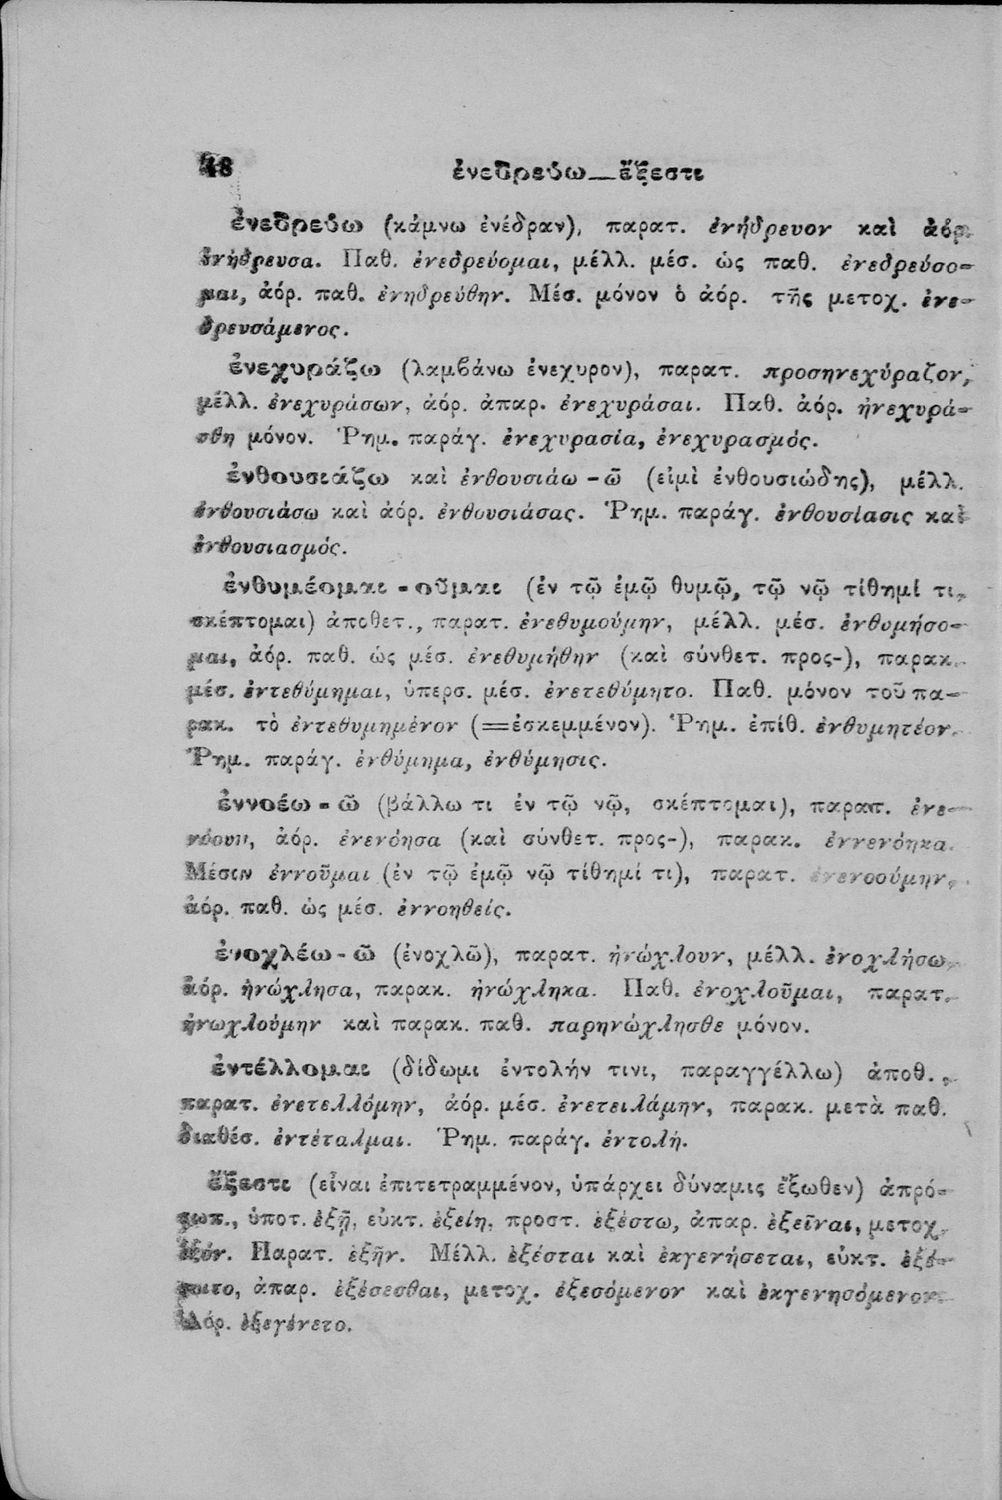 48
ἐνεδρεύω—ἔξεστι
ἐνεδρεύω (κάμνω ἐνέδραν), παρατ. ἐνήδρευον καὶ ἀόρ.
ἐνήδρευσα. Παθ. ἐνεδρεύομαι, μέλλ. μέσ. ὡς παθ. ἐνεδρεύσο-
μαι, ἀόρ. παθ. ἐνηδρεύθην. Μέσ. μόνον ὁ ἀόρ. τῆς μετοχ. ἐνε-
δρευσάμενος.
ἐνεχυράζω (λαμβάνω ἐνεχυρον), παρατ. προσηνεχύραζον,
μέλλ. ἐνεχυράσων, ἀόρ. ἀπαρ. ἐνεχυράσαι. Παθ. ἀόρ. ἠνεχυρά-
σθη μόνον. Ῥημ. παράγ. ἐνεχυρασία, ἐνεχυρασμός.
ἐνθουσιάζω καὶ ἐνθουσιάω -ῶ (εἰμὶ ἐνθουσιώδης), μέλλ.
ἐνθουσιάσω καὶ ἀόρ. ἐνθουσιάσας. Ῥημ. παράγ. ἐνθουσίασις καὶ
ἐνθουσιασμός.
ἐνθυμέομαι - οῦμαι (ἐν τῷ ἐμῷ θυμῷ, τῷ νῷ τίθημί τι,
σκέπτομαι) ἀποθετ., παρατ. ἐνεθυμούμην, μέλλ. μέσ. ἐνθυμήσο-
μαι, ἀόρ. παθ. ὡς μέσ. ἐνεθυμήθην (καὶ σύνθετ. προς-), παρακ.
μέσ. ἐντεθύμημαι, ὑπερσ. μέσ. ἐνετεθύμητο. Παθ. μόνον τοῦ πα-
ρακ. τὸ ἐντεθυμημένον (=ἐσκεμμένον). Ῥημ. ἐπίθ. ἐνθυμητέον.
Ῥημ. παράγ. ἐνθύμημα, ἐνθύμησις.
ἐννοέω - ῶ (βάλλω τι ἐν τῷ νῷ, σκέπτομαι), παρατ. ἐνε-
νόουν, ἀόρ. ἐνενόησα (καὶ σύνθετ. προς-), παρακ. ἐννενόηκα.
Μέσον ἐννοῦμαι (ἐν τῷ ἐμῷ νῷ τίθημί τι), παρατ. ἐνενοούμην,
ἀόρ. παθ. ὡς μέσ. ἐννοηθείς.
ἐνοχλέω - ῶ (ἐνοχλῶ), παρατ. ἠνώχλουν, μέλλ. ἐνοχλήσω,
ἀόρ. ἠνώχλησα, παρακ. ἠνώχληκα. Παθ. ἐνοχλοῦμαι, παρατ.
ἠνωχλούμην καὶ παρακ. παθ. παρηνώχλησθε μόνον.
ἐντέλλομαι (δίδωμι ἐντολήν τινι, παραγγέλλω) ἀποθ.,
παρατ. ἐνετελλόμην, ἀόρ. μέσ. ἐνετειλάμην, παρακ. μετὰ παθ.
διαθέσ. ἐντέταλμαι. Ῥημ. παράγ. ἐντολή.
ἔξεστι (εἶναι ἐπιτετραμμένον, ὑπάρχει δύναμις ἔξωθεν) ἀπρό-
σωπ., ὑποτ. ἐξῇ, εὐκτ. ἐξείη, προστ. ἐξέστω, ἀπαρ. ἐξεῖναι, μετοχ.
ἐξόν. Παρατ. ἐξῆν. Μέλλ. ἐξέσται καὶ ἐκγενήσεται, εὐκτ. ἐξέ-
σοιτο, ἀπαρ. ἐξέσεσθαι, μετοχ. ἐξεσόμενον καὶ ἐκγενησόμενον.
Ἀόρ. ἐξεγένετο.